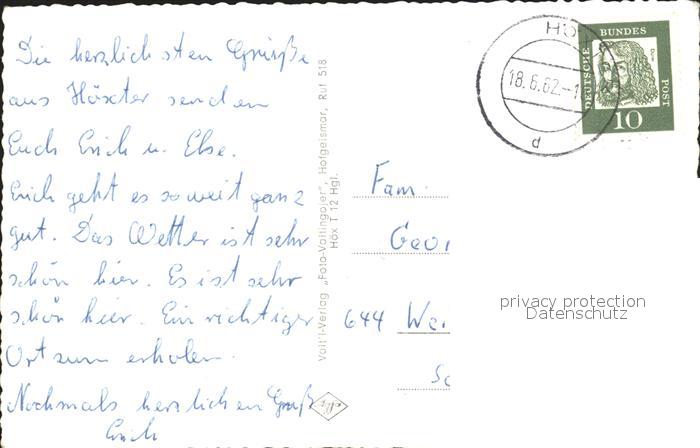 Die herzlichsten Grüße
aus Höxter senden
Euch Erich u. Else.
Erich geht es so weit ganz
gut. Das Wetter ist sehr
schön hier. Es ist sehr
schön hier. Ein richtiger
Ort zum erholen.
Nochmals herzlichen Gruß
Erich
Voit'l-Verlag „Foto-Voitingojer", Hofgeismar, Ruf 518
Höx T 12 Hgl.
18.6.62.-1
d
DEUTSCHE BUNDES POST
10
Fam.
644
privacy protection
Datenschutz